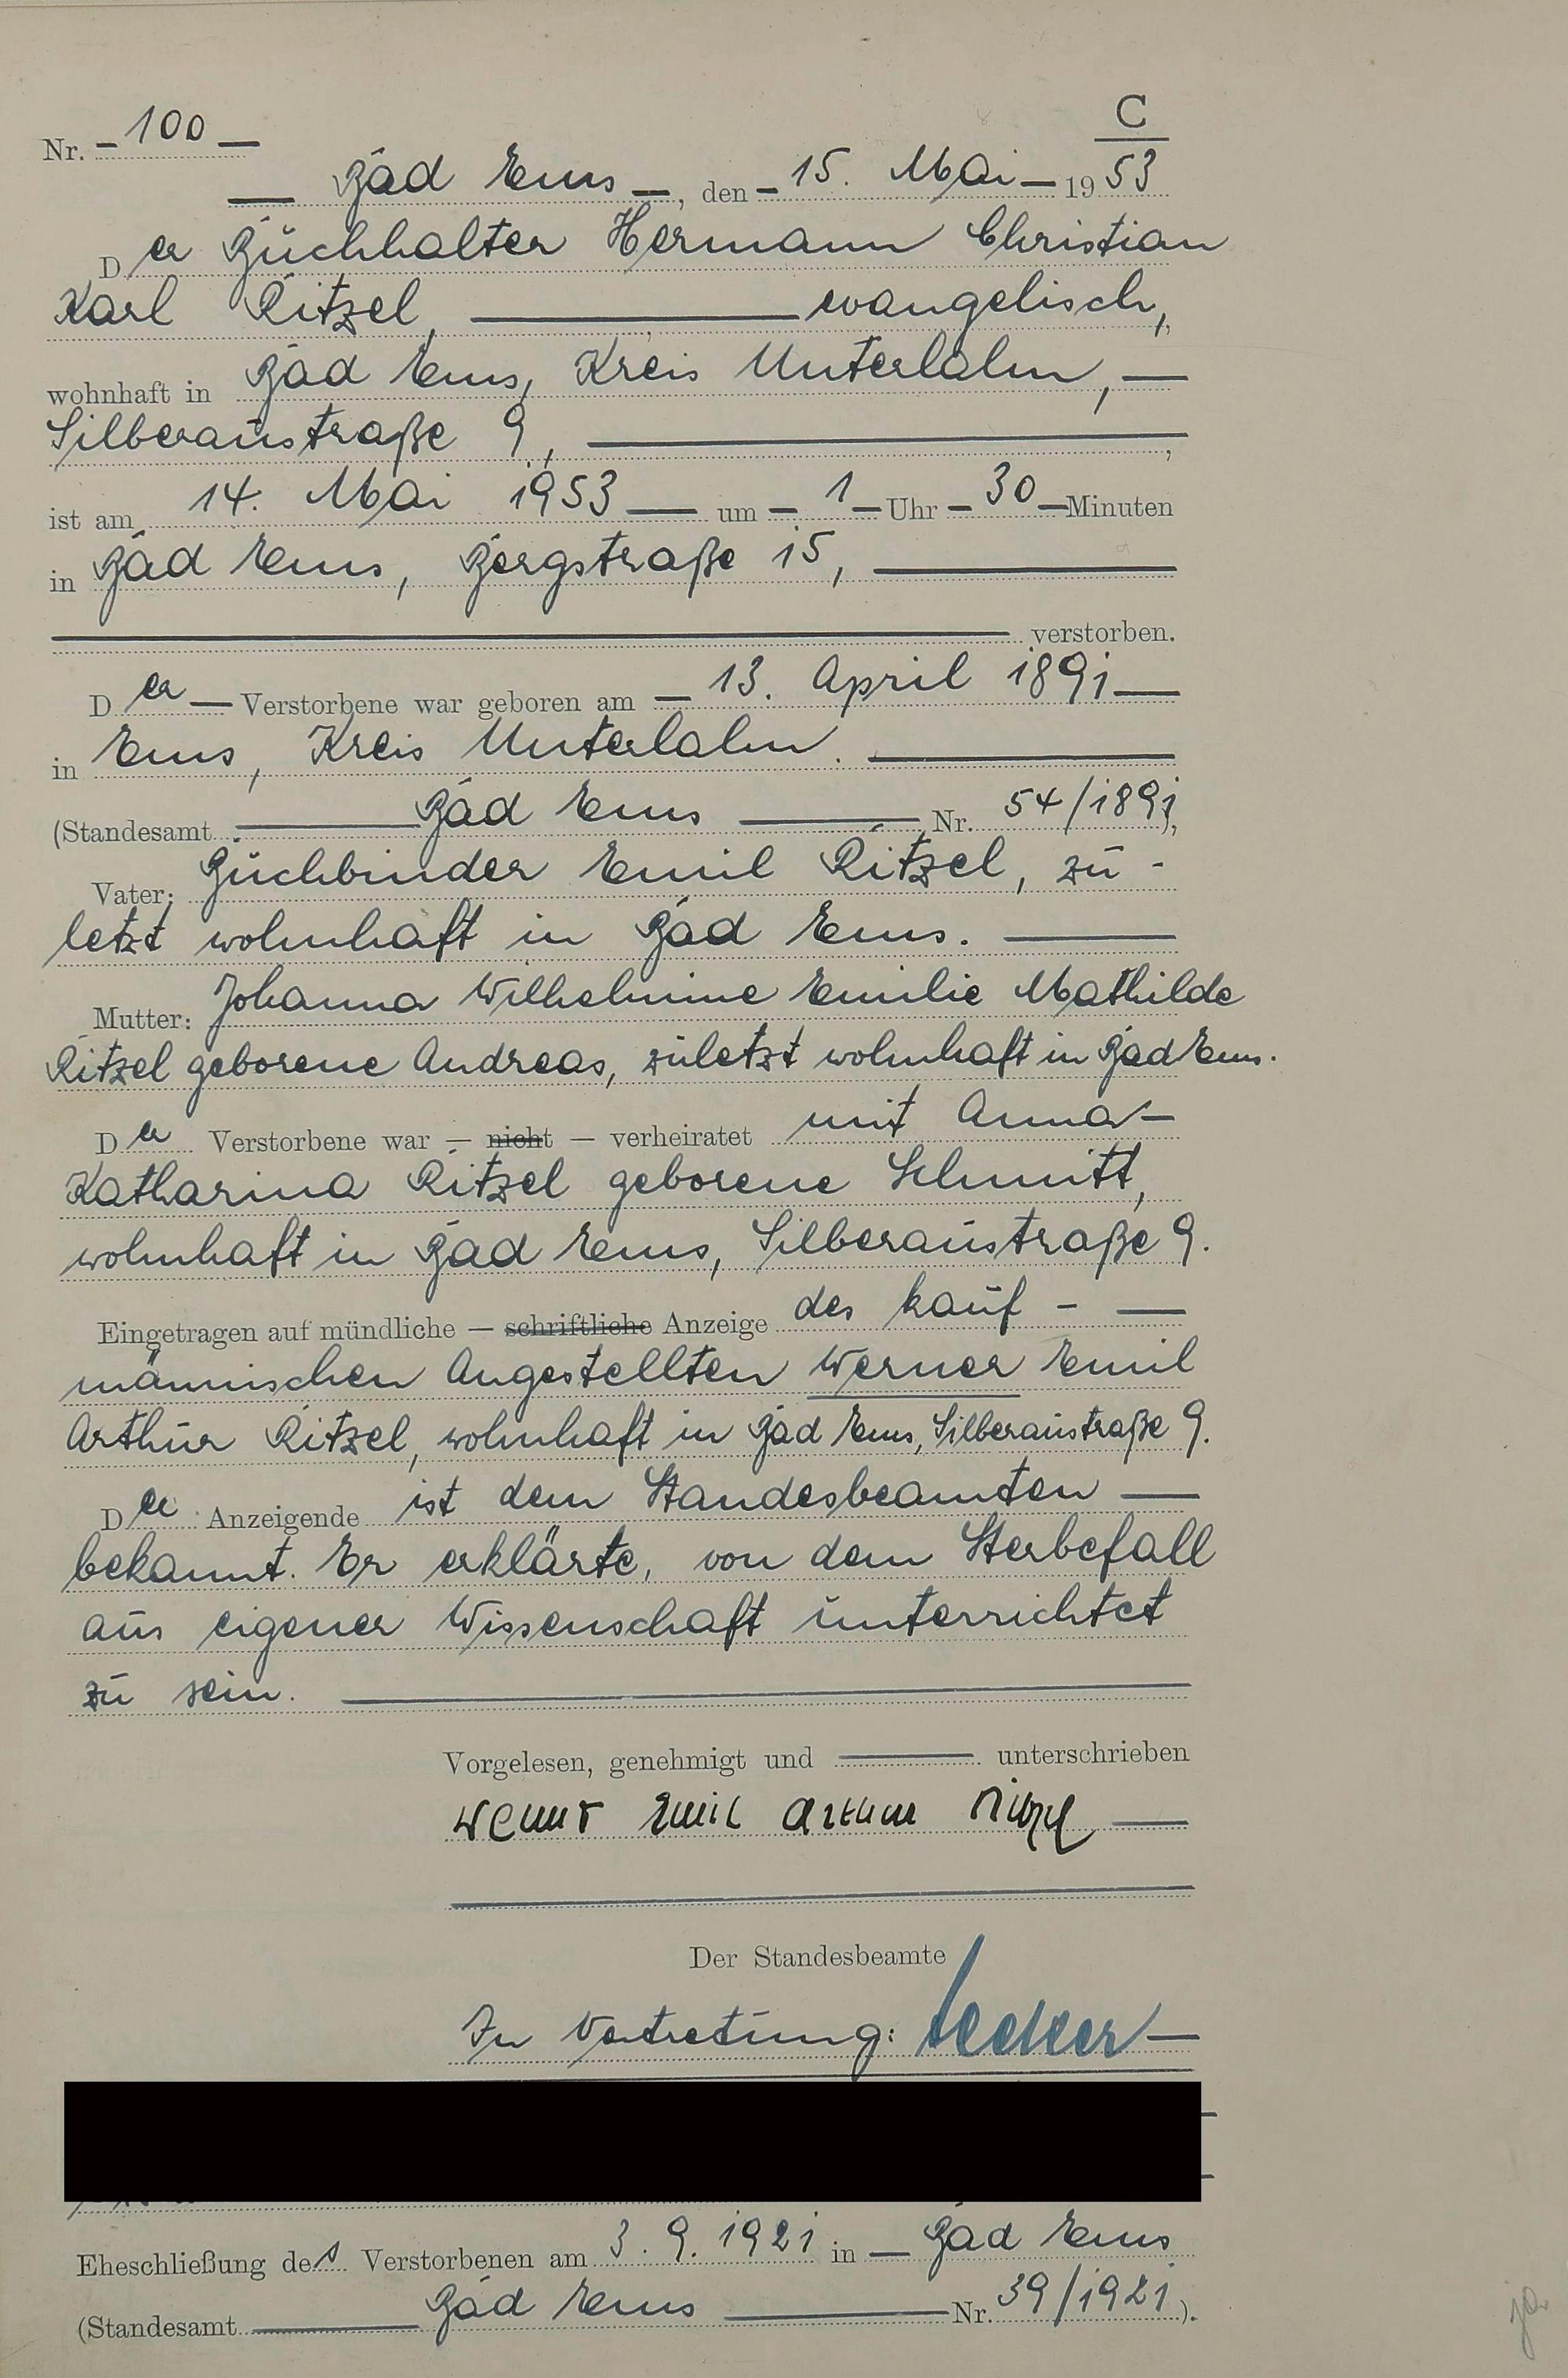 C
Nr. - 100 -
Bad Ems, den - 15. Mai - 1953
Der Buchhalter Hermann Christian
Karl Ritzel, evangelisch,
wohnhaft in Bad Ems, Kreis Unterlahn,
Silberaustraße 9,
ist am 14. Mai 1953 um - 1 - Uhr - 30 - Minuten
in Bad Ems, Bergstraße 15,
verstorben.
Der Verstorbene war geboren am 13. April 1891
in Ems, Kreis Unterlahn.
(Standesamt Bad Ems Nr. 54/1891),
Vater: Buchbinder Emil Ritzel, zu-
letzt wohnhaft in Bad Ems.
Mutter: Johanna Wilhelmine Emilie Mathilde
Ritzel geborene Andreas, zuletzt wohnhaft in Bad Ems.
Der Verstorbene war — nicht — verheiratet mit Anna
Katharina Ritzel geborene Schmitt,
wohnhaft in Bad Ems, Silberaustraße 9.
Eingetragen auf mündliche — schriftliche Anzeige des kauf-
männischen Angestellten Werner Emil
Arthur Ritzel, wohnhaft in Bad Ems, Silberaustraße 9.
Der Anzeigende ist dem Standesbeamten
bekannt. Er erklärte, von dem Sterbefall
aus eigener Wissenschaft unterrichtet
zu sein.
Vorgelesen, genehmigt und unterschrieben
Werner Emil Arthur Ritzel
Der Standesbeamte
In Vertretung:
Eheschließung des Verstorbenen am 3. 9. 1921 in Bad Ems
(Standesamt Bad Ems Nr. 39/1921).